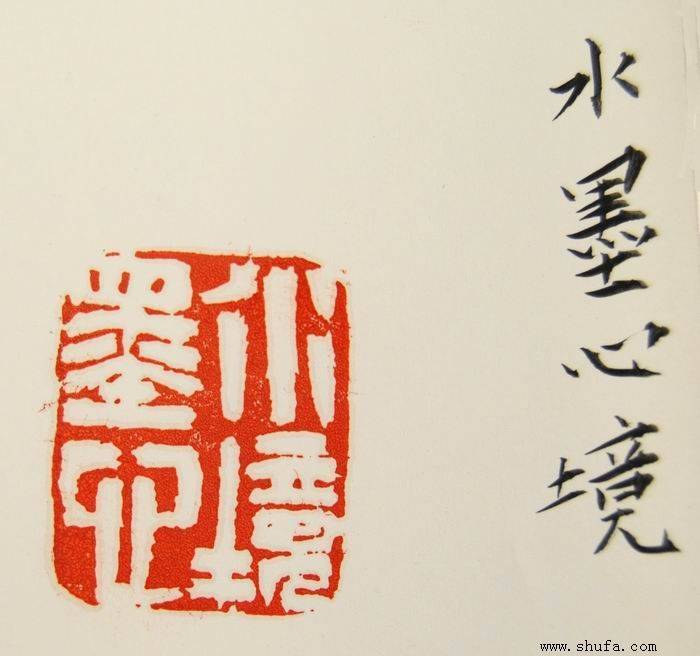 水墨心境
水墨心境
www.shufa.com